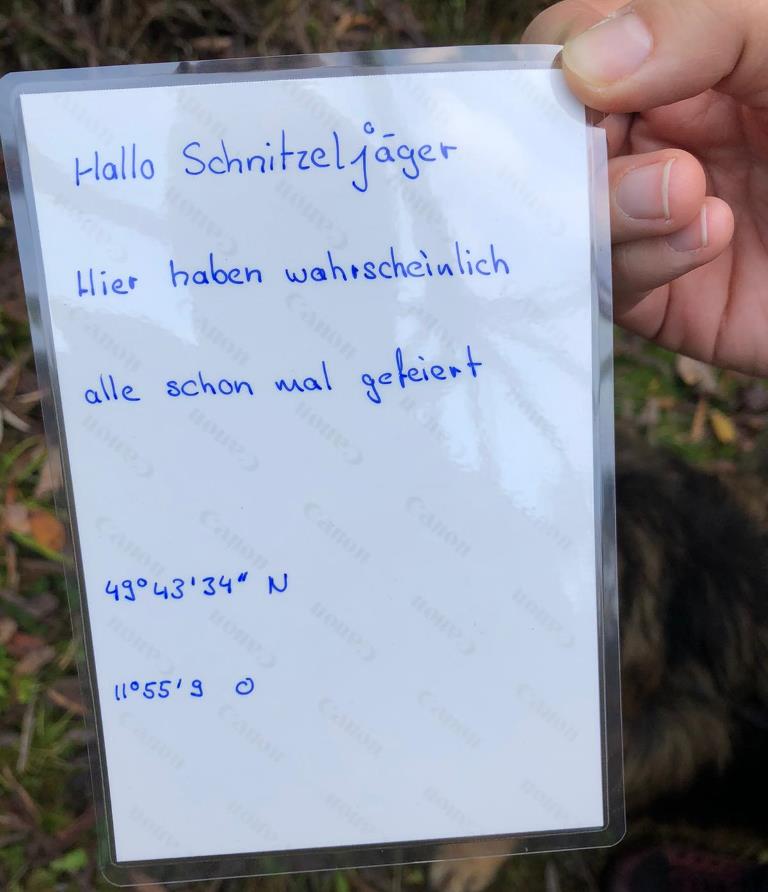 Hallo Schnitzeljäger
Hier haben wahrscheinlich
alle schon mal gefeiert
49°43'34" N
11°55'9 O